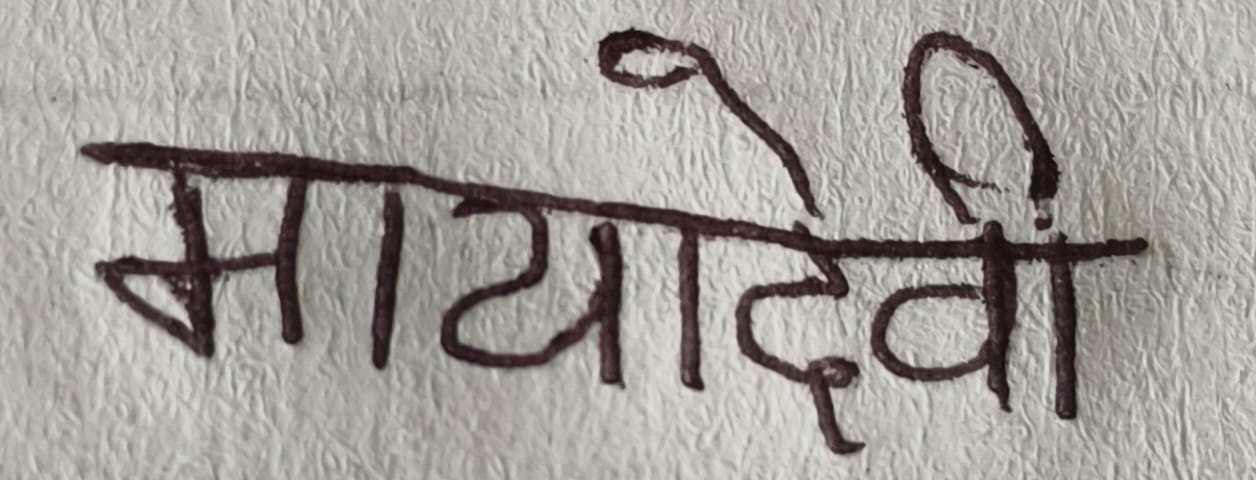 मायादेवी